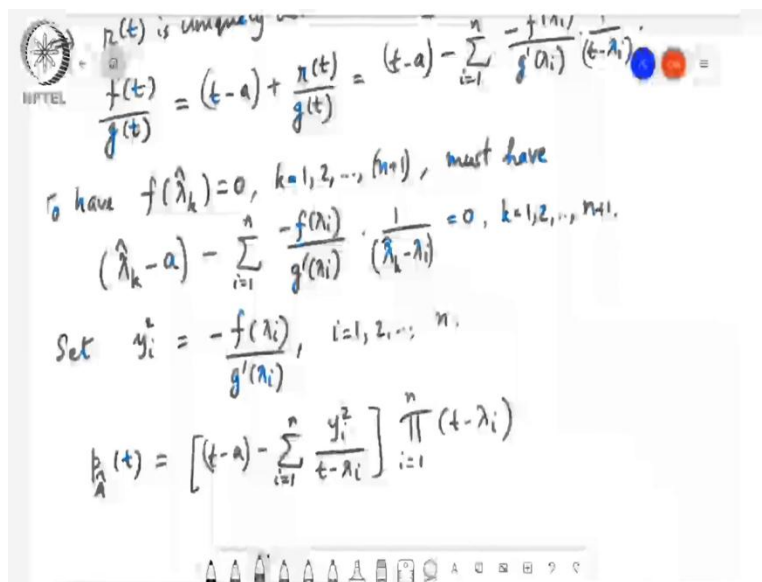 r(t) is uniquely
f(t)/g(t) = (t-a) + r(t)/g(t) = (t-a) - Σ_{i=1}^{n} -f(λi)/g'(λi) · 1/(t-λi).
NPTEL
To have f(λ̂_k)=0, k=1,2,...,(n+1), must have
(λ̂_k-a) - Σ_{i=1}^{n} -f(λi)/g'(λi) · 1/(λ̂_k-λi) =0, k=1,2,..., n+1.
Set y_i^2 = -f(λi)/g'(λi), i=1,2,..., n.
p_Â(t) = [(t-a) - Σ_{i=1}^{n} y_i^2/(t-λi)] Π_{i=1}^{n} (t-λi)